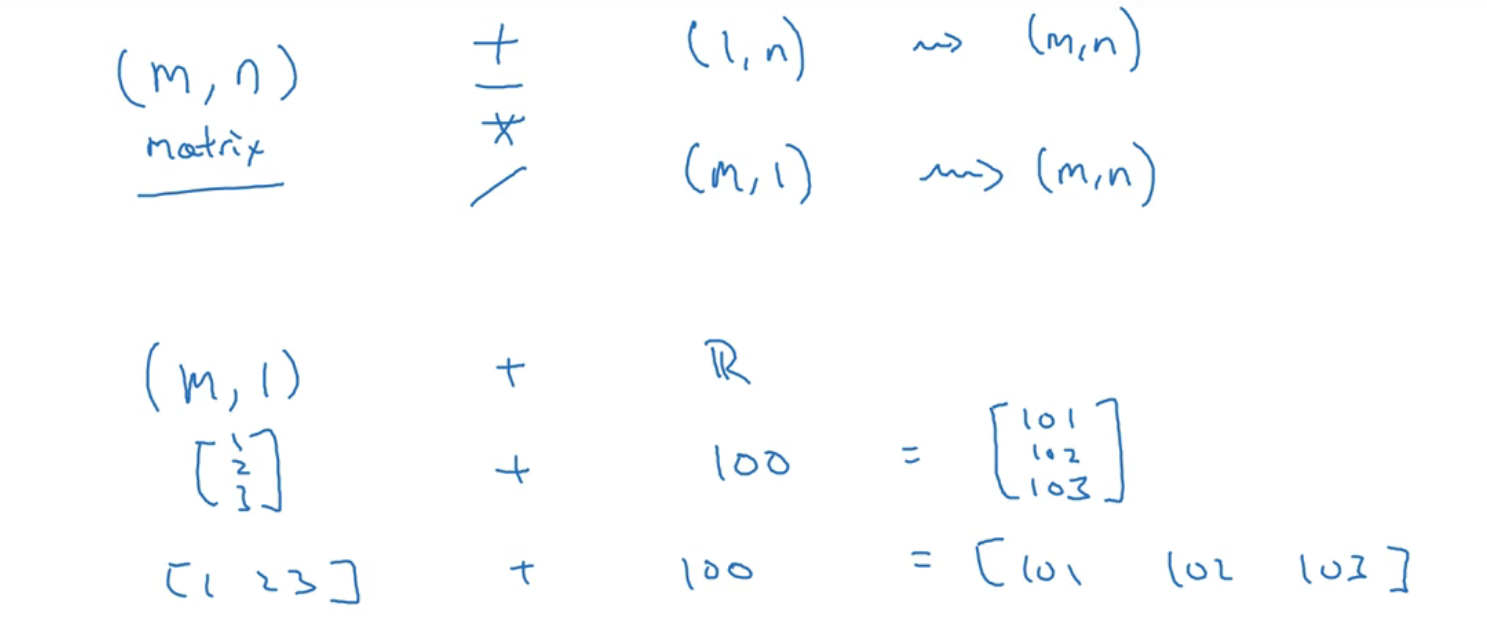 (m, n) + (1, n) ⇝ (m, n)
matrix −
*
/ (m, 1) ⇝ (m, n)
(m, 1) + ℝ
[1 2 3] + 100 = [101 102 103]
[1 2 3] + 100 = [101 102 103]